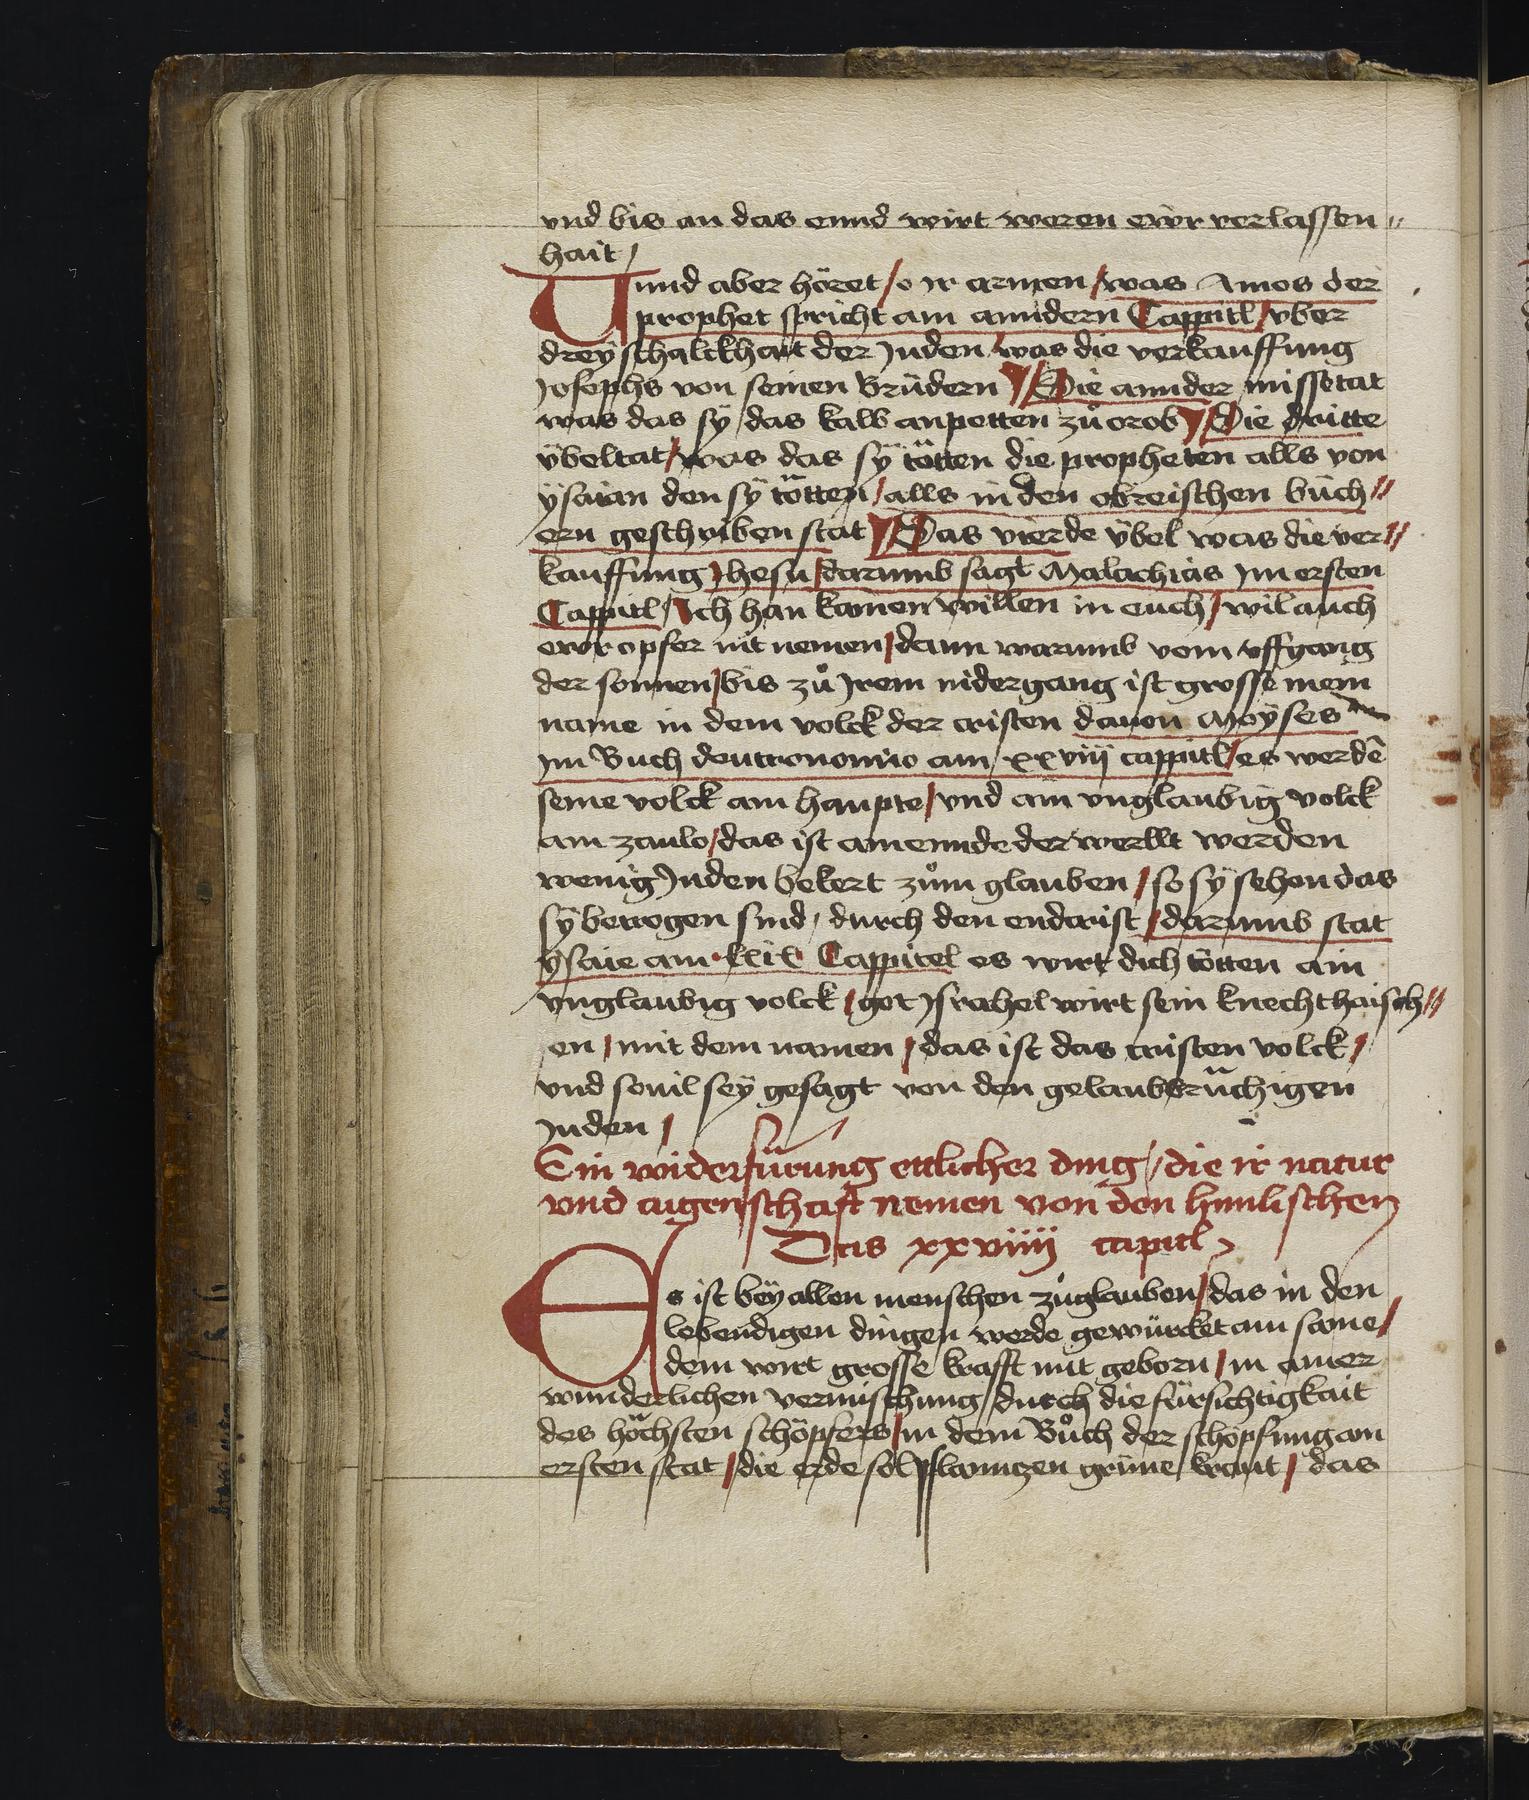 vnd bis an das ennd wirt weren ewr verlassen〃
hait /
Vnnd aber höret / o ir armen / was Amos der
prophet spricht am anndern Cappitl / vber
drey schalckhait der Juden / was die verkauffung
Josephs von seinen Brüdern / Die annder missetat
was das sÿ / das kalb anpetten zů orob / Die dritte
übeltat / was das sÿ tötten die propheten alls von
ÿsaian den sÿ tötten / alls in den ebreischen büch〃
ern geschriben stat / Das vierde übel was die ver〃
kauffung Jhesu / darumb sagt Malachias im ersten
Cappitl / Ich han kainen willen in euch / wil auch
ewr opfer nit nemen / dann warumb vom vffgang
der sonnen / bis zů Jrem nidergang ist grosse mein
name in dem volck der cristen dauon Moÿses
im Buch deutronomio am xxviij cappitl / es werdē
seine volck am haupte / vnd ain vnglaubig volck
am zaulo / das ist am ennde der werllt werden
wenig Juden bekert zům glauben / so sÿ sehen das
sÿ betrogen sind / durch den endcrist / darumb stat
ÿsaie am lxix Cappitel es wirt dich tötten ain
vnglaubig volck / got Jsrahel wirt sein knecht haisch〃
en / mit dem namen / das ist das cristen volck /
vnd souil seÿ gesagt von den gelaubbrüchigen
Juden /
Ein widerfürung ettlicher ding / die ir natur
vnd aigenschaft nemen von den himlischen
Das xxviiij capitl
Es ist beÿ allen menschen zůglauben / das in den
lebendigen dingen werde gewürcket ain same /
dem wirt grosse krafft mit geborn / in ainer
wunderlichen vermischung / durch die fürsichtigkait
des höchsten schöpfers / in dem Bůch der schöpfung am
ersten stat / die erde sol pflanntzen grüne kraut / das